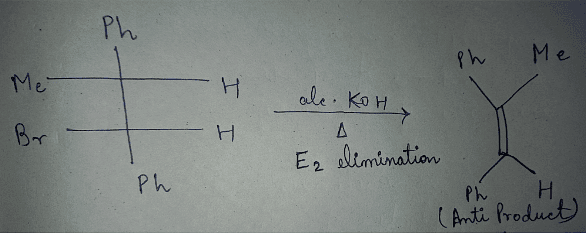 Ph
Me H
Br H
Ph
alc. KOH
Δ
E2 elimination
Ph Me
Ph H
(Anti Product)